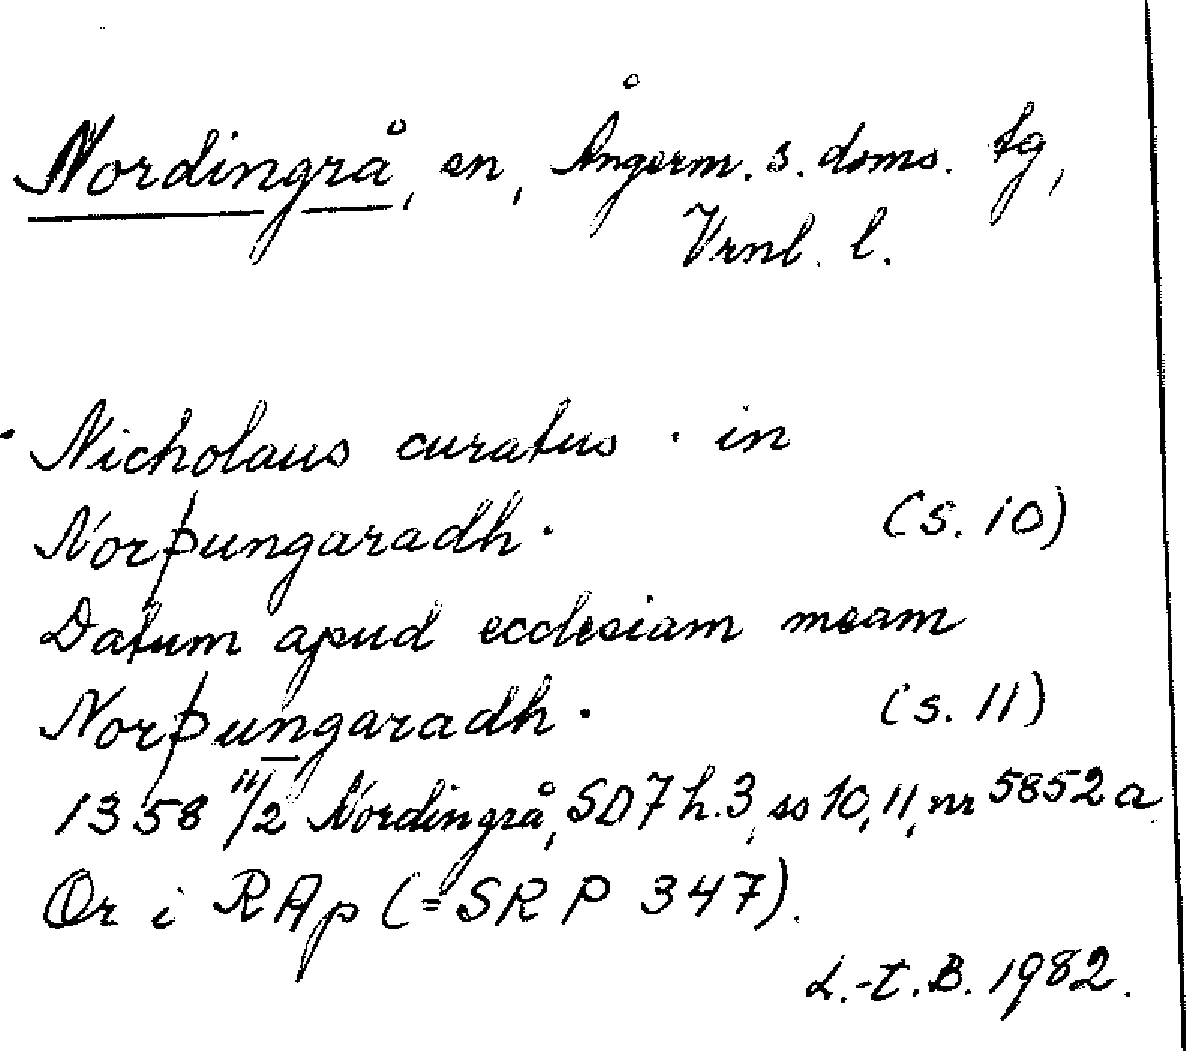 Nordingrå, sn, Ångerm. s. doms. tg,
Vrnl. l.
Nicholaus curatus · in
Norþungaradh · (s. 10)
Datum apud ecclesiam meam
Norþungaradh · (s. 11)
1358 11/2 Nordingrå, SD7 h.3, ss 10, 11, nr 5852 a
Or i RAp (= SRP 347).
L.-t. B. 1982.